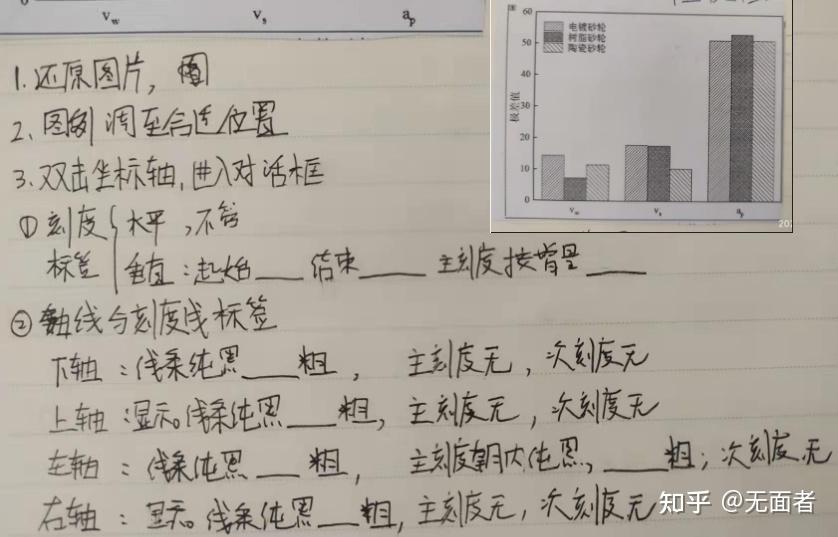 0
v_w v_s a_p
60
50
40
30
20
10
0
极差值
电镀砂轮
树脂砂轮
陶瓷砂轮
v_w v_s a_p
20
1.还原图片,
2、图例 调至合适位置
3.双击坐标轴,进入对话框
①刻度 水平,不管
标签 垂直:起始___ 结束___ 主刻度按增量___
②轴线与刻度线标签
下轴:线条纯黑___粗, 主刻度无,次刻度无
上轴:显示。线条纯黑___粗,主刻度无,次刻度无
左轴:线条纯黑___粗, 主刻度朝内纯黑,___粗;次刻度无
右轴:显示。线条纯黑___粗,主刻度无,次刻度无
知乎 @无面者